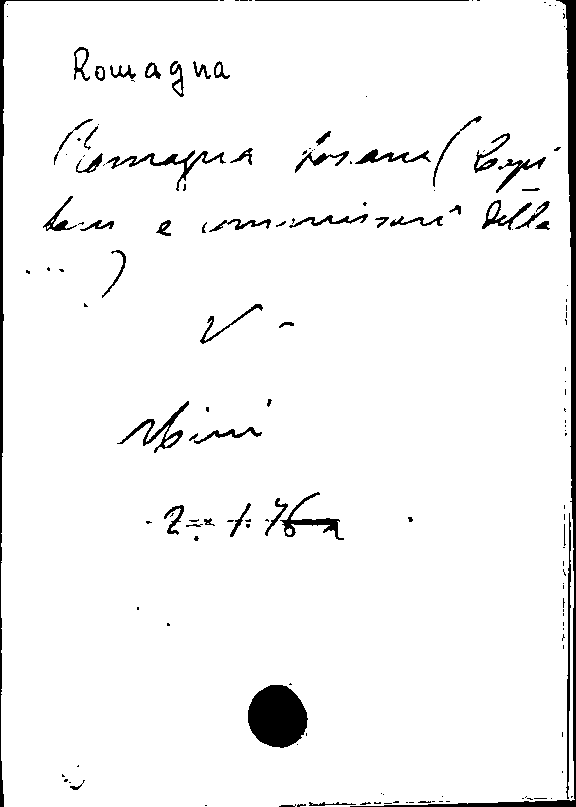 Romagna
Romagna toscana (Capi
tani e commissari della
...)
V-
Mini